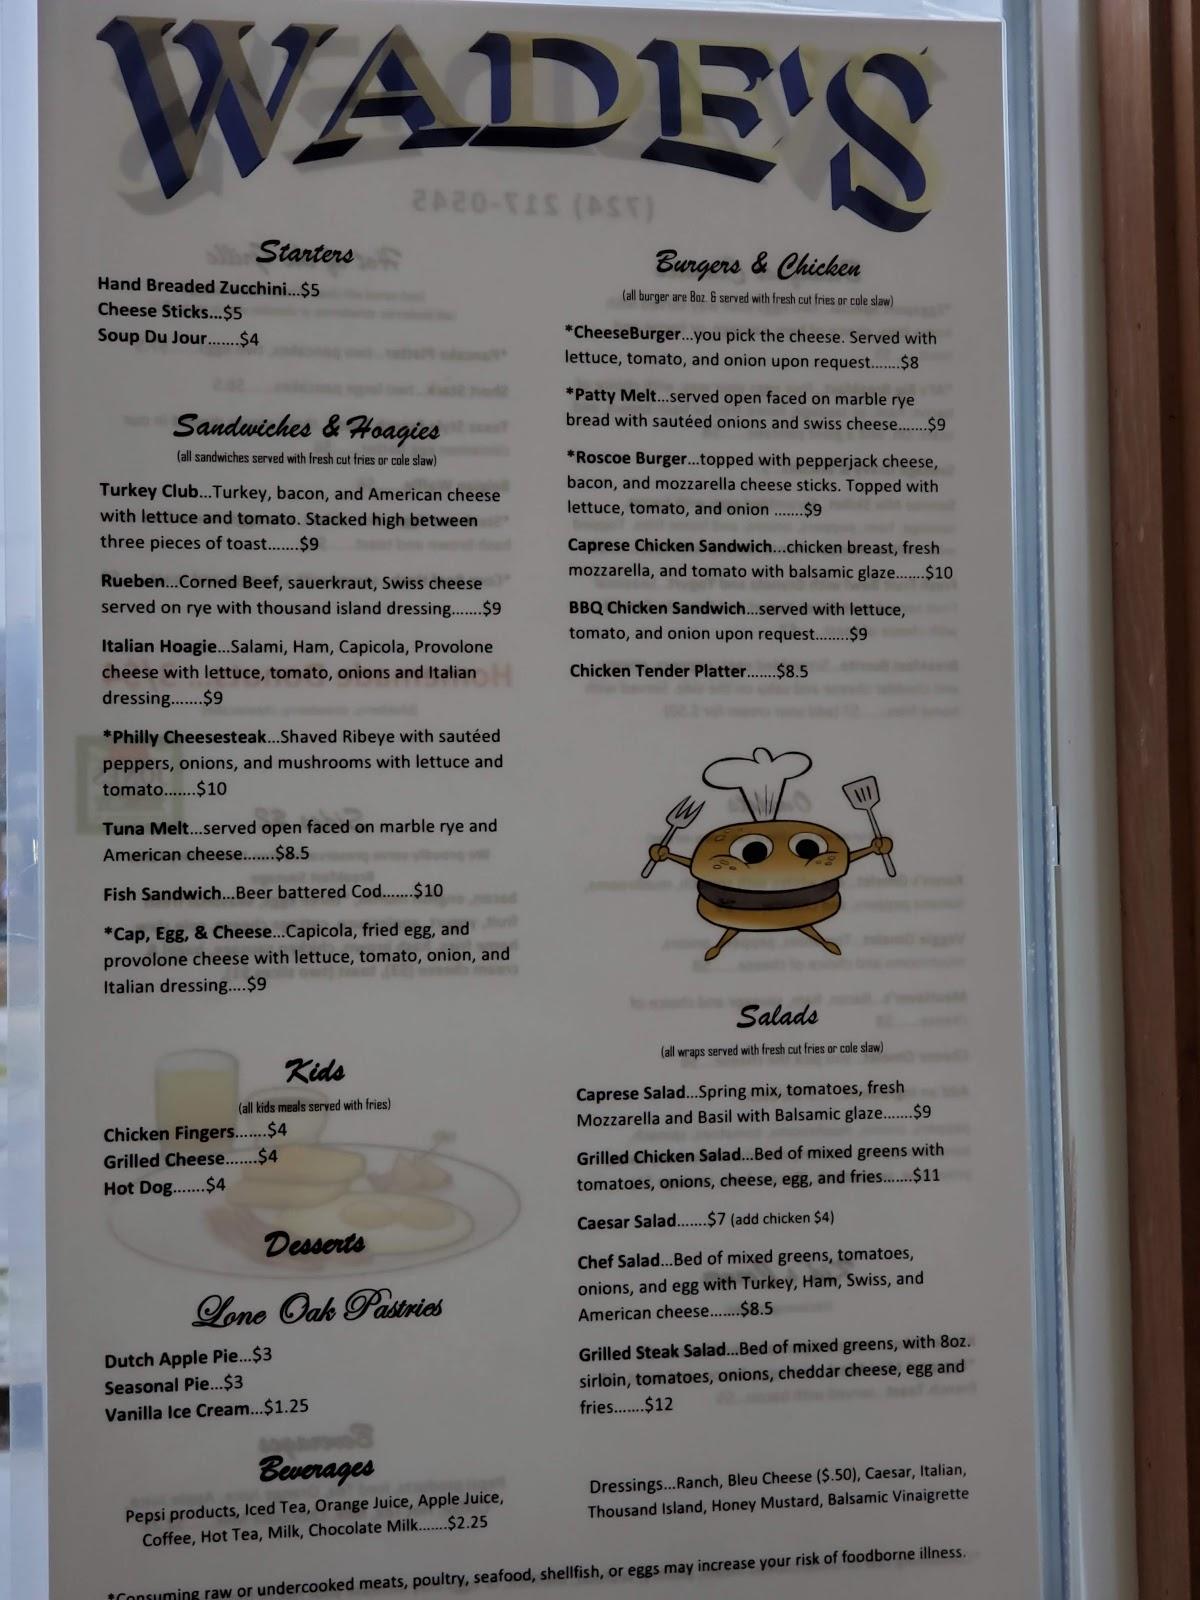 WADE'S
(724) 217-0545
Starters
Hand Breaded Zucchini...$5
Cheese Sticks...$5
Soup Du Jour.......$4
Sandwiches & Hoagies
(all sandwiches served with fresh cut fries or cole slaw)
Turkey Club...Turkey, bacon, and American cheese
with lettuce and tomato. Stacked high between
three pieces of toast.......$9
Rueben...Corned Beef, sauerkraut, Swiss cheese
served on rye with thousand island dressing.......$9
Italian Hoagie...Salami, Ham, Capicola, Provolone
cheese with lettuce, tomato, onions and Italian
dressing.......$9
*Philly Cheesesteak...Shaved Ribeye with sautéed
peppers, onions, and mushrooms with lettuce and
tomato.......$10
Tuna Melt...served open faced on marble rye and
American cheese.......$8.5
Fish Sandwich...Beer battered Cod.......$10
*Cap, Egg, & Cheese...Capicola, fried egg, and
provolone cheese with lettuce, tomato, onion, and
Italian dressing....$9
Kids
(all kids meals served with fries)
Chicken Fingers.......$4
Grilled Cheese.......$4
Hot Dog.......$4
Desserts
Lone Oak Pastries
Dutch Apple Pie...$3
Seasonal Pie...$3
Vanilla Ice Cream...$1.25
Beverages
Pepsi products, Iced Tea, Orange Juice, Apple Juice,
Coffee, Hot Tea, Milk, Chocolate Milk.......$2.25
Burgers & Chicken
(all burger are 8oz. & served with fresh cut fries or cole slaw)
*CheeseBurger...you pick the cheese. Served with
lettuce, tomato, and onion upon request.......$8
*Patty Melt...served open faced on marble rye
bread with sautéed onions and swiss cheese.......$9
*Roscoe Burger...topped with pepperjack cheese,
bacon, and mozzarella cheese sticks. Topped with
lettuce, tomato, and onion .......$9
Caprese Chicken Sandwich...chicken breast, fresh
mozzarella, and tomato with balsamic glaze.......$10
BBQ Chicken Sandwich...served with lettuce,
tomato, and onion upon request........$9
Chicken Tender Platter.......$8.5
Salads
(all wraps served with fresh cut fries or cole slaw)
Caprese Salad...Spring mix, tomatoes, fresh
Mozzarella and Basil with Balsamic glaze.......$9
Grilled Chicken Salad...Bed of mixed greens with
tomatoes, onions, cheese, egg, and fries.......$11
Caesar Salad.......$7 (add chicken $4)
Chef Salad...Bed of mixed greens, tomatoes,
onions, and egg with Turkey, Ham, Swiss, and
American cheese.......$8.5
Grilled Steak Salad...Bed of mixed greens, with 8oz.
sirloin, tomatoes, onions, cheddar cheese, egg and
fries.......$12
Dressings...Ranch, Bleu Cheese ($.50), Caesar, Italian,
Thousand Island, Honey Mustard, Balsamic Vinaigrette
*Consuming raw or undercooked meats, poultry, seafood, shellfish, or eggs may increase your risk of foodborne illness.